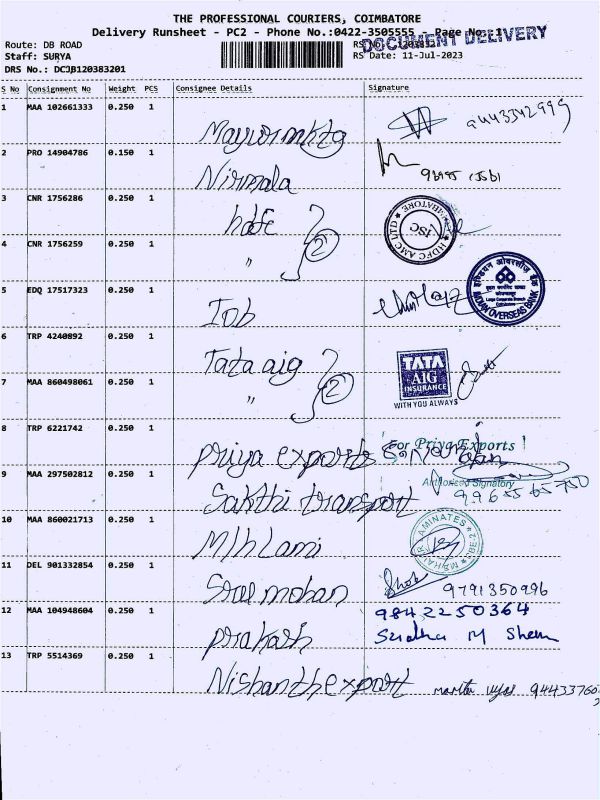 THE PROFESSIONAL COURIERS, COIMBATORE
Delivery Runsheet - PC2 - Phone No.:0422-3505555 Page No.:1
DOCUMENT DELIVERY
Route: DB ROAD
Staff: SURYA RS Date: 11-Jul-2023
DRS No.: DCJB120383201
S No Consignment No Weight PCS Consignee Details Signature
1 MAA 102661333 0.250 1
2 PRO 14904786 0.150 1
Nirmala
3 CNR 1756286 0.250 1
hdfc
HDFC AMC LTD ★ COIMBATORE ★ ISC
4 CNR 1756259 0.250 1
" 2
5 EDQ 17517323 0.250 1
Iob
INDIAN OVERSEAS BANK
6 TRP 4240892 0.250 1
Tata aig
TATA
AIG
INSURANCE
WITH YOU ALWAYS
7 MAA 860498061 0.250 1
" 2
8 TRP 6221742 0.250 1
priya exports
For Priya Exports
Authorised Signatory
9 MAA 297502812 0.250 1
Sakthi transport
10 MAA 860021713 0.250 1
11 DEL 901332854 0.250 1
mohan 9791350996
12 MAA 104948604 0.250 1
9842250364
prakash
13 TRP 5514369 0.250 1
Nishanth export